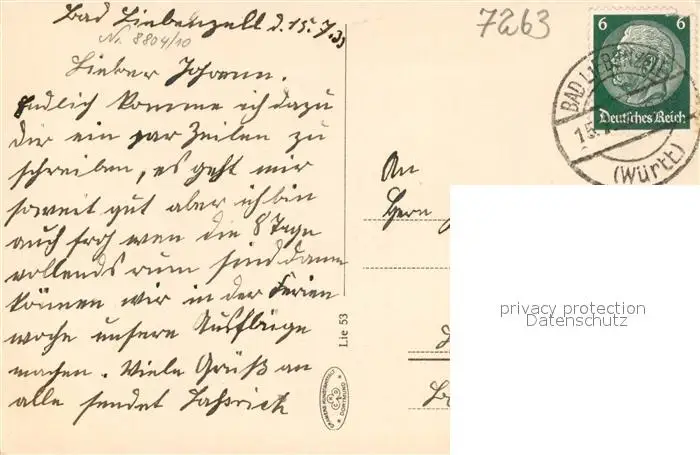 Bad Liebenzell d. 15. 7. 33
No. 8804/10
7263
Lieber Johann.
Endlich komme ich dazu
dir ein par Zeilen zu
schreiben, es geht mir
soweit gut aber ich bin
auch froh wen die 8 Tage
vollends rum sind dann
können wir in der Ferien
woche unsere Ausflüge
machen. Viele Grüß an
alle sendet
An
Herrn
Lie 53
CRAMERS KUNSTANSTALT
DORTMUND
6 6
Deutsches Reich
BAD LIEBENZELL
15.
(Württ)
privacy protection
Datenschutz